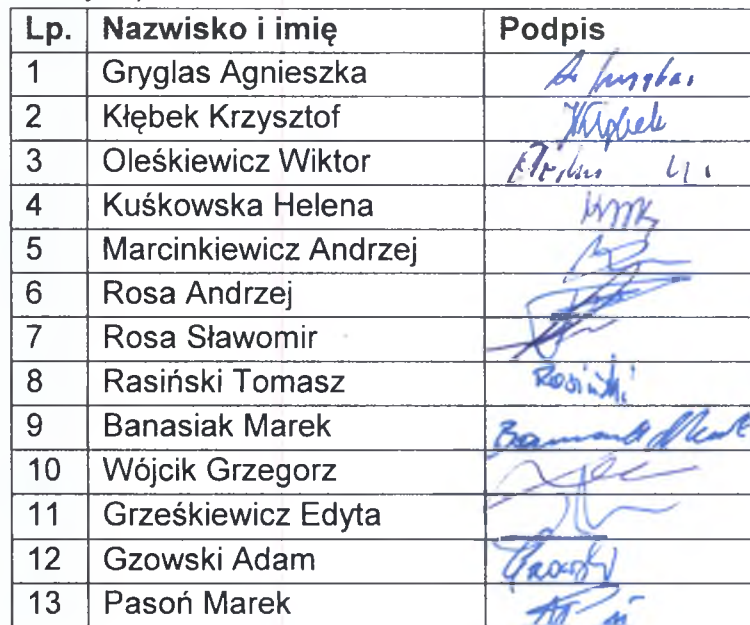 Lp. Nazwisko i imię Podpis
1 Gryglas Agnieszka
2 Kłębek Krzysztof Kłębek
3 Oleśkiewicz Wiktor
4 Kuśkowska Helena
5 Marcinkiewicz Andrzej
6 Rosa Andrzej
7 Rosa Sławomir
8 Rasiński Tomasz Rasiński
9 Banasiak Marek
10 Wójcik Grzegorz
11 Grześkiewicz Edyta
12 Gzowski Adam
13 Pasoń Marek